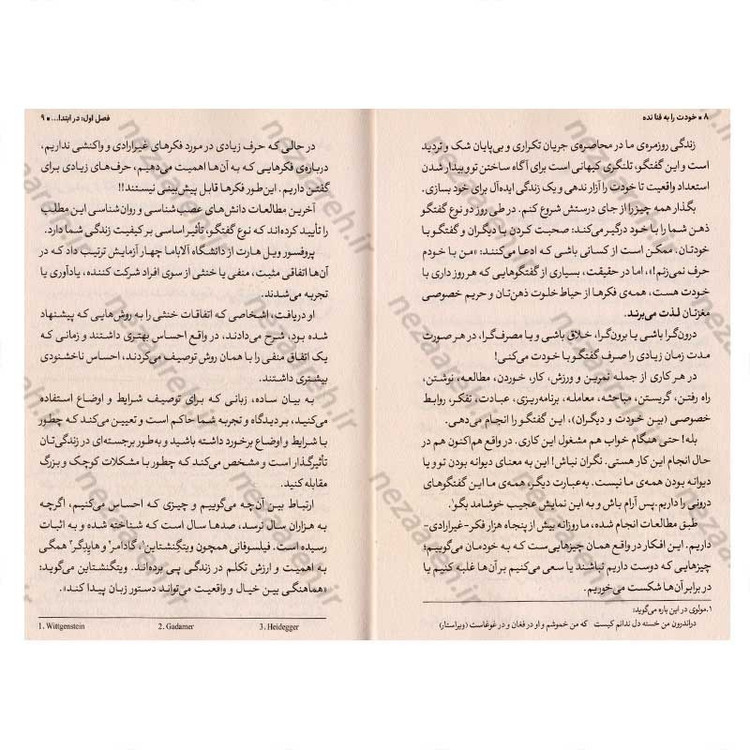 ۸ • خودت را به فنا نده
زندگی روزمره‌ی ما در محاصره‌ی جریان تکراری و بی‌پایان شک و تردید
است و این گفتگو، تلنگری کیهانی است برای آگاه ساختن تو و بیدار شدن
استعداد واقعیت تا خودت را آزار ندهی و یک زندگی ایده‌آل برای خود بسازی.
بگذار همه چیز را از جای درستش شروع کنم. در طی روز دو نوع گفتگو
ذهن شما را با خود درگیر می‌کند: صحبت کردن با دیگران و گفتگو با
خودتان. ممکن است از کسانی باشی که ادعا می‌کنند: «من با خودم
حرف نمی‌زنم!»، اما در حقیقت، بسیاری از گفتگوهایی که هر روز داری با
خودت هست، همه‌ی فکرها از حیاط خلوت ذهن‌تان و حریم خصوصی
مغزتان لذت می‌برند.
درون‌گرا باشی یا برون‌گرا، خلاق باشی و یا مصرف‌گرا، در هر صورت
مدت زمان زیادی را صرف گفتگو با خودت می‌کنی!
در هر کاری از جمله تمرین و ورزش، کار، خوردن، مطالعه، نوشتن،
راه رفتن، گریستن، مباحثه، معامله، برنامه‌ریزی، عبادت، تفکر، روابط
خصوصی (بین خودت و دیگران)، این گفتگو را انجام می‌دهی.
بله! حتی هنگام خواب هم مشغول این کاری. در واقع هم‌اکنون هم در
حال انجام این کار هستی. نگران نباش! این به معنای دیوانه بودن تو و یا
دیوانه بودن همه‌ی ما نیست. به‌عبارت دیگر، همه‌ی ما گفتگوهای
درونی را داریم. پس آرام باش و به این نمایش عجیب خوشامد بگو¹.
طبق مطالعات انجام شده، ما روزانه بیش از پنجاه هزار فکر -غیرارادی-
داریم. این افکار در واقع همان چیزهایی‌ست که به خودمان می‌گوییم؛
چیزهایی که دوست داریم نباشند یا سعی می‌کنیم بر آن‌ها غلبه کنیم یا
در برابر آن‌ها شکست می‌خوریم.
۱. مولوی در این باره می‌گوید:
در اندرون من خسته دل ندانم کیست که من خموشم و او در فغان و در غوغاست (ویراستار)
فصل اول: در ابتدا... • ۹
در حالی که حرف زیادی در مورد فکرهای غیرارادی و واکنشی نداریم،
درباره‌ی فکرهایی که به آن‌ها اهمیت می‌دهیم، حرف‌های زیادی برای
گفتن داریم. این‌طور فکرها قابل پیش‌بینی نیستند!!
آخرین مطالعات دانش‌های عصب‌شناسی و روان‌شناسی این مطلب
را تأیید کرده‌اند که نوع گفتگو، تأثیر اساسی بر کیفیت زندگی شما دارد.
پروفسور ویل هارت از دانشگاه آلاباما چهار آزمایش ترتیب داد که در
آن‌ها اتفاقی مثبت، منفی یا خنثی از سوی افراد شرکت کننده، یادآوری یا
تجربه می‌شدند.
او دریافت، اشخاصی که اتفاقات خنثی را به روش‌هایی که پیشنهاد
شده بود، شرح می‌دادند، در واقع احساس بهتری داشتند و زمانی که
یک اتفاق منفی را با همان روش توصیف می‌کردند، احساس ناخشنودی
بیشتری داشتند.
به بیان ساده، زبانی که برای توصیف شرایط و اوضاع استفاده
می‌کنید، بر دیدگاه و تجربه شما حاکم است و تعیین می‌کند که چطور
با شرایط و اوضاع برخورد داشته باشید و به‌طور برجسته‌ای در زندگی‌تان
تأثیرگذار است و مشخص می‌کند که چطور با مشکلات کوچک و بزرگ
مقابله کنید.
ارتباط بین آن‌چه می‌گوییم و چیزی که احساس می‌کنیم، اگرچه
به هزاران سال نرسد، صدها سال است که شناخته شده و به اثبات
رسیده است. فیلسوفانی همچون ویتگنشتاین¹، گادامر² و هایدگر³ همگی
به اهمیت و ارزش تکلم در زندگی پی برده‌اند. ویتگنشتاین می‌گوید:
«هماهنگی بین خیال و واقعیت می‌تواند دستور زبان پیدا کند.»
1. Wittgenstein 2. Gadamer 3. Heidegger
nezaareh.ir